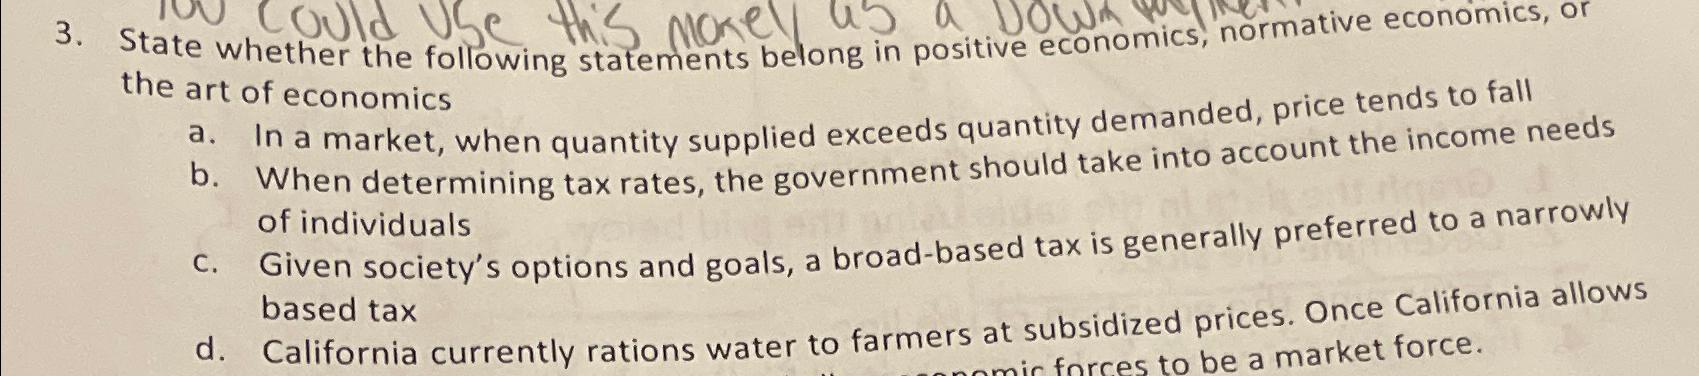 could use this money as a Down
3. State whether the following statements belong in positive economics, normative economics, or
the art of economics
a. In a market, when quantity supplied exceeds quantity demanded, price tends to fall
b. When determining tax rates, the government should take into account the income needs
of individuals
c. Given society's options and goals, a broad-based tax is generally preferred to a narrowly
based tax
d. California currently rations water to farmers at subsidized prices. Once California allows
forces to be a market force.